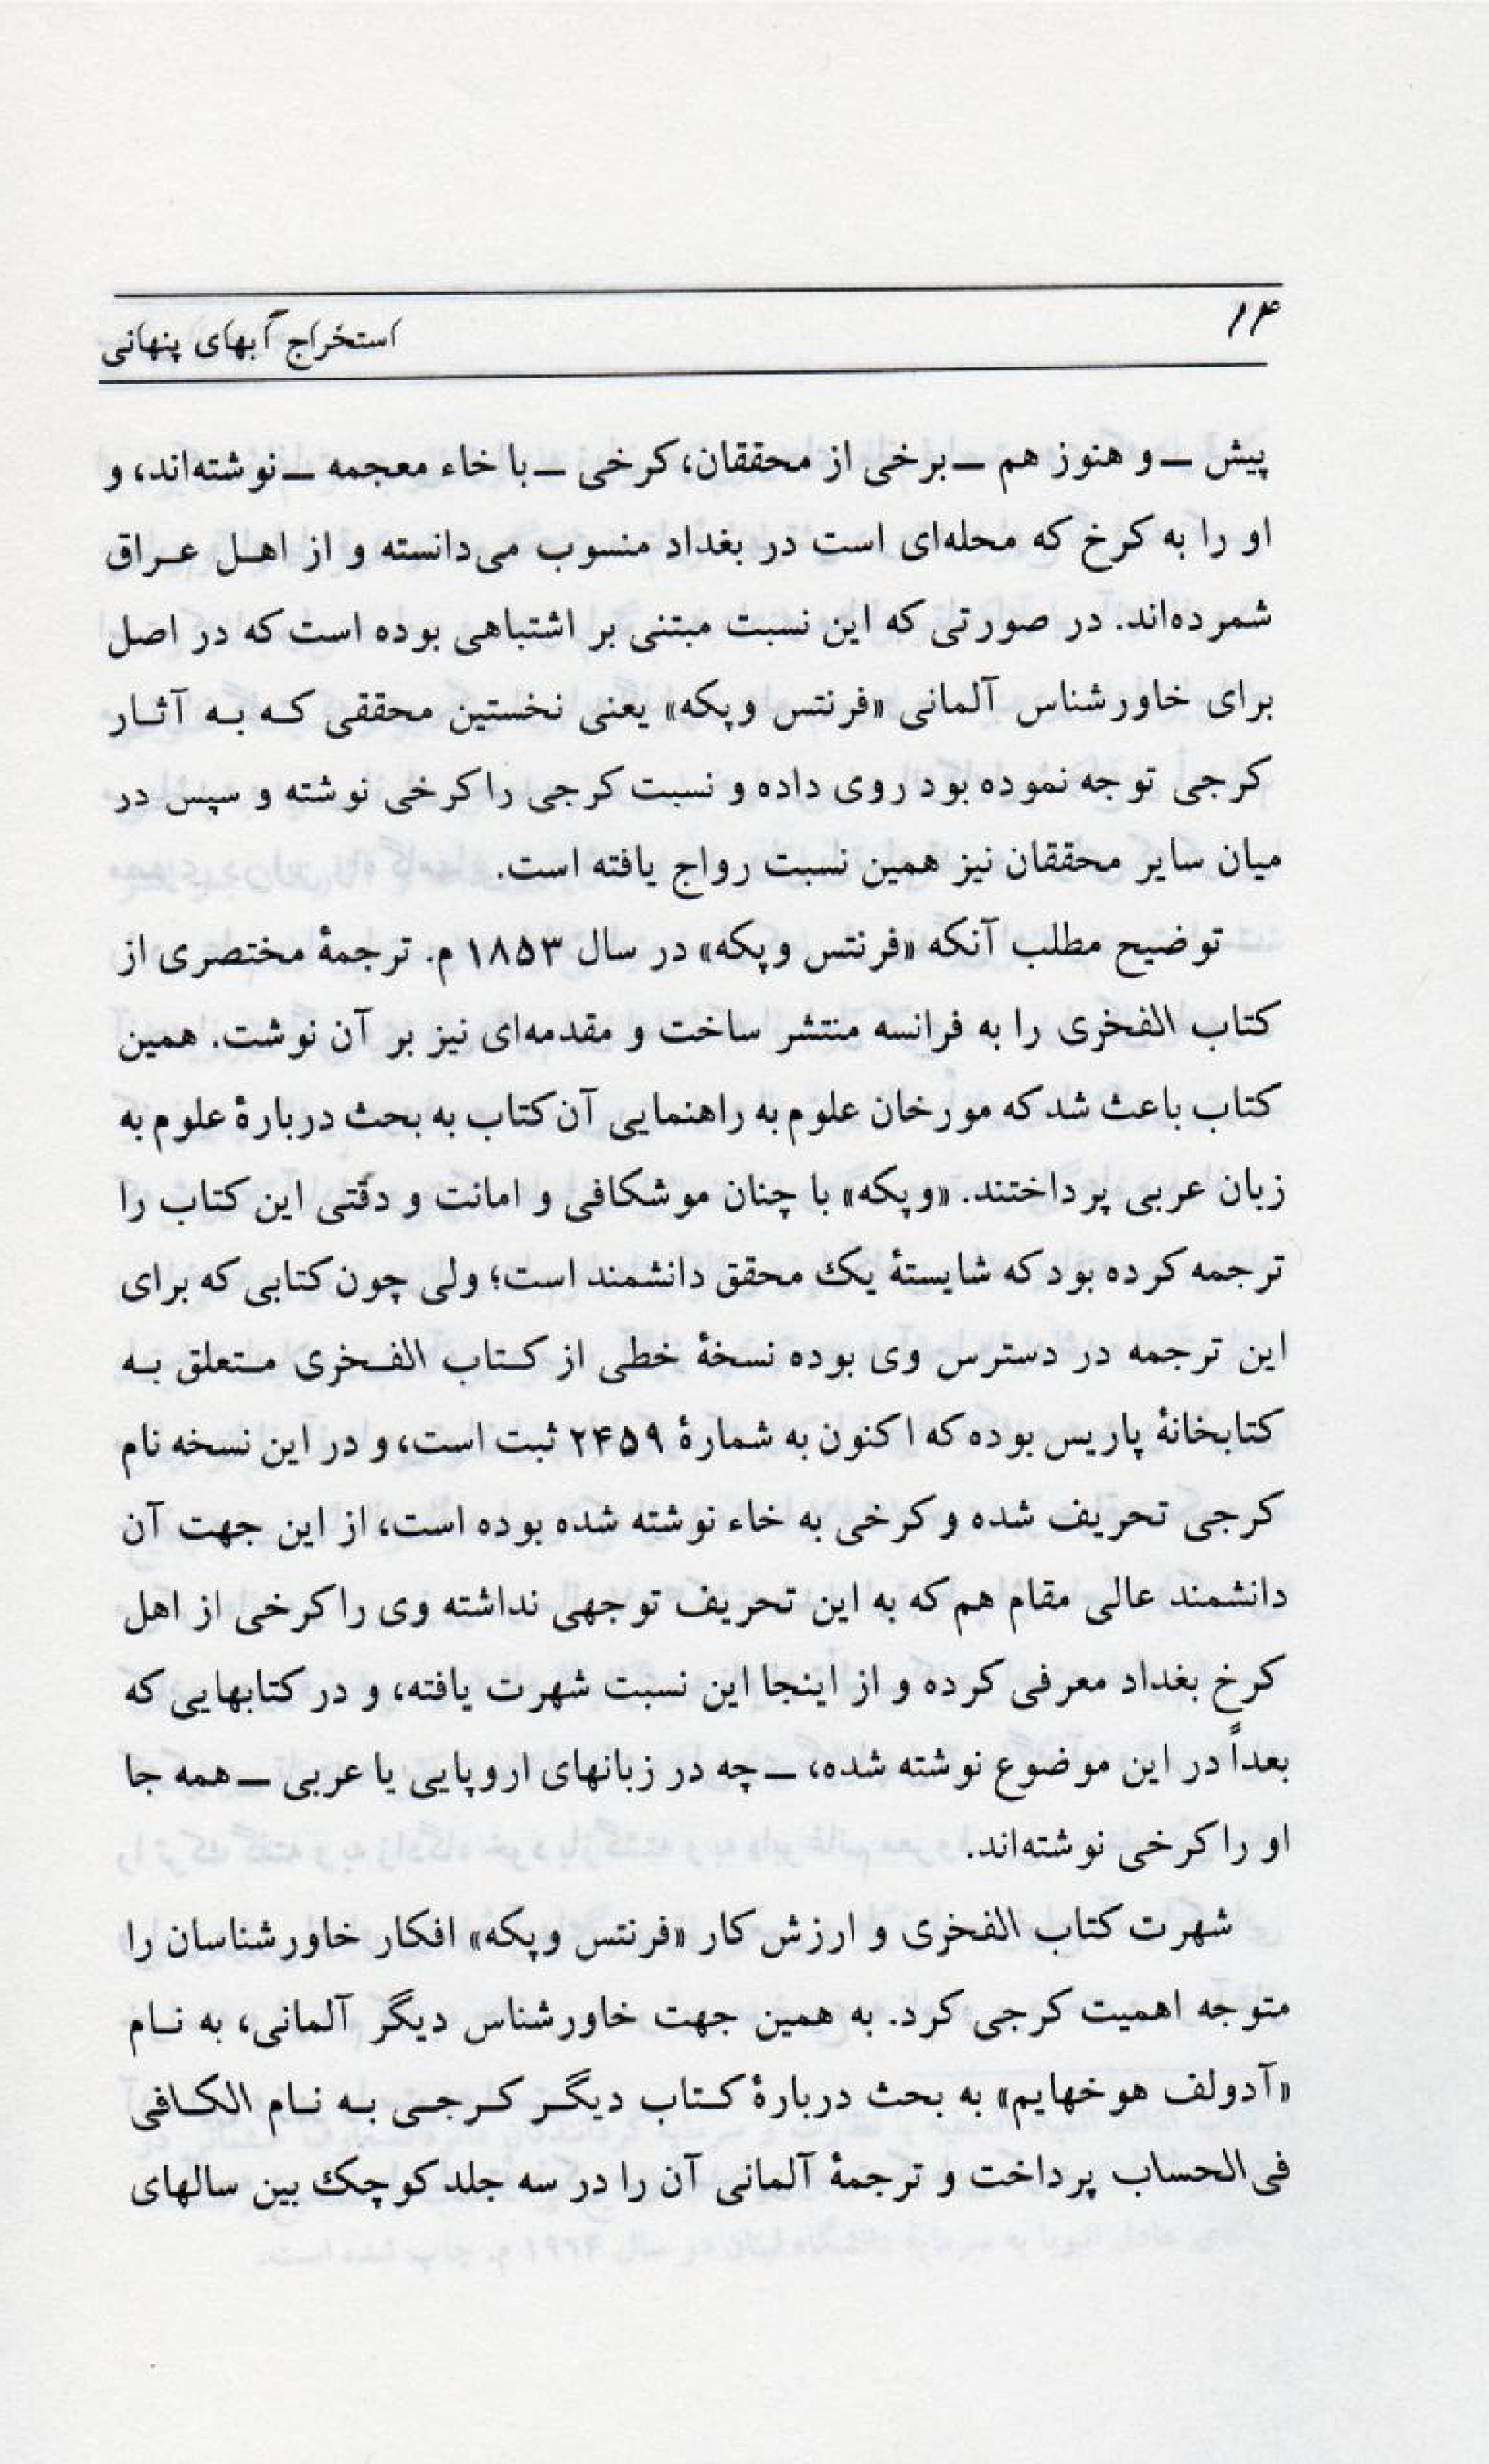 ۱۴
استخراج آبهای پنهانی
پیش ــ و هنوز هم ــ برخی از محققان، کرخی ــ با خاء معجمه ــ نوشته‌اند، و
او را به کرخ که محله‌ای است در بغداد منسوب می‌دانسته و از اهل عراق
شمرده‌اند. در صورتی که این نسبت مبتنی بر اشتباهی بوده است که در اصل
برای خاورشناس آلمانی «فرنتس وپکه» یعنی نخستین محققی که به آثار
کرجی توجه نموده بود روی داده و نسبت کرجی را کرخی نوشته و سپس در
میان سایر محققان نیز همین نسبت رواج یافته است.
توضیح مطلب آنکه «فرنتس وپکه» در سال ۱۸۵۳ م. ترجمهٔ مختصری از
کتاب الفخری را به فرانسه منتشر ساخت و مقدمه‌ای نیز بر آن نوشت. همین
کتاب باعث شد که مورخان علوم به راهنمایی آن کتاب به بحث دربارهٔ علوم به
زبان عربی پرداختند. «وپکه» با چنان موشکافی و امانت و دقّتی این کتاب را
ترجمه کرده بود که شایستهٔ یک محقق دانشمند است؛ ولی چون کتابی که برای
این ترجمه در دسترس وی بوده نسخهٔ خطی از کتاب الفخری متعلق به
کتابخانهٔ پاریس بوده که اکنون به شمارهٔ ۲۴۵۹ ثبت است، و در این نسخه نام
کرجی تحریف شده و کرخی به خاء نوشته شده بوده است، از این جهت آن
دانشمند عالی مقام هم که به این تحریف توجهی نداشته وی را کرخی از اهل
کرخ بغداد معرفی کرده و از اینجا این نسبت شهرت یافته، و در کتابهایی که
بعداً در این موضوع نوشته شده، ــ چه در زبانهای اروپایی یا عربی ــ همه جا
او را کرخی نوشته‌اند.
شهرت کتاب الفخری و ارزش کار «فرنتس وپکه» افکار خاورشناسان را
متوجه اهمیت کرجی کرد. به همین جهت خاورشناس دیگر آلمانی، به نام
«آدولف هوخهایم» به بحث دربارهٔ کتاب دیگر کرجی به نام الکافی
فی‌الحساب پرداخت و ترجمهٔ آلمانی آن را در سه جلد کوچک بین سالهای